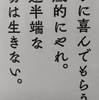 に喜んでもらう
底的にやれ。
途半端な
は生きない。